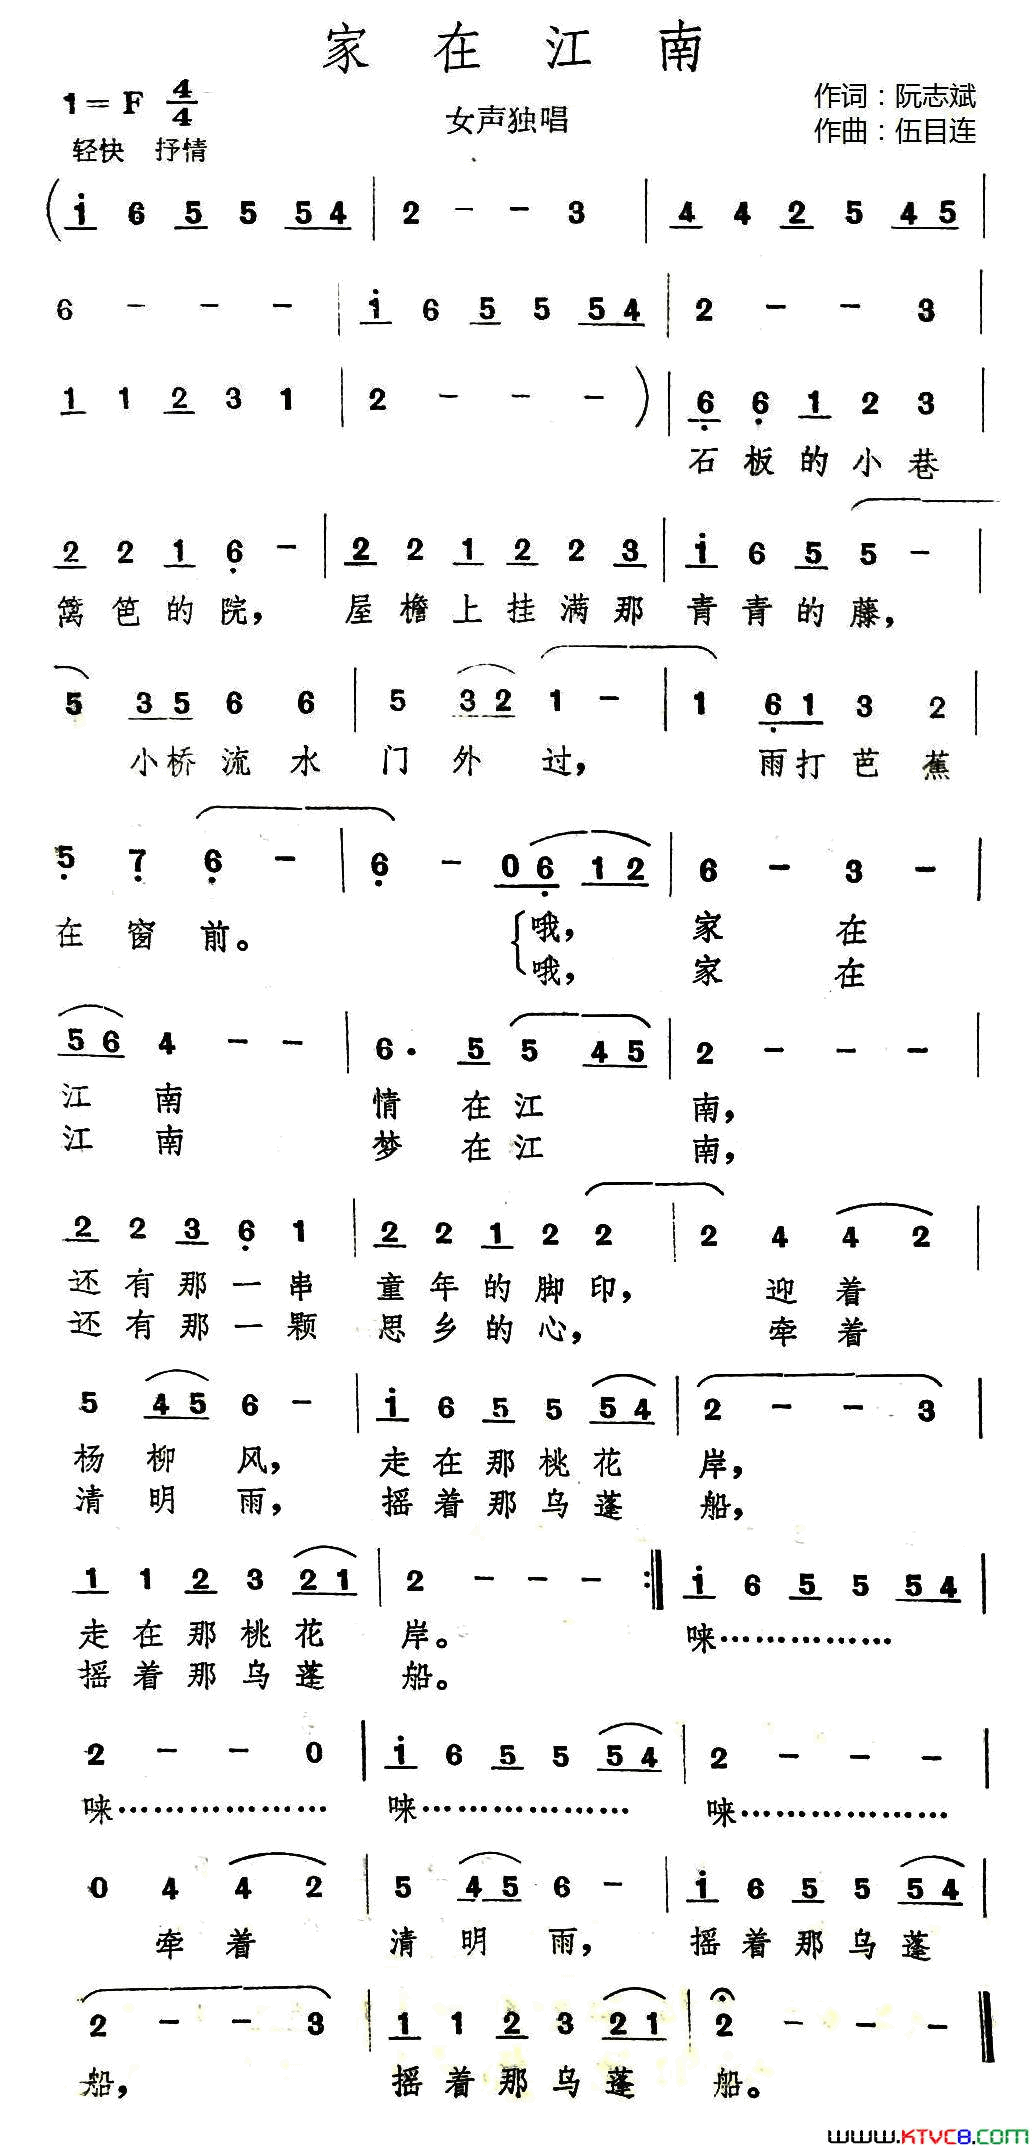 家在江南
1=F 4/4
女声独唱
作词：阮志斌
作曲：伍目连
轻快 抒情
(i 6 5 5 5 4 | 2 - - 3 | 4 4 2 5 4 5 |
6 - - - | i 6 5 5 5 4 | 2 - - 3 |
1 1 2 3 1 | 2 - - - ) | 6 6 1 2 3 |
石板的小巷
2 2 1 6 - | 2 2 1 2 2 3 | i 6 5 5 - |
篱笆的院， 屋檐上挂满那 青青的藤，
5 3 5 6 6 | 5 3 2 1 - | 1 6 1 3 2 |
小桥流水 门外过， 雨打芭蕉
5 7 6 - | 6 - 0 6 1 2 | 6 - 3 - |
在窗前。 哦， 家在
哦， 家在
5 6 4 - - | 6 · 5 5 4 5 | 2 - - - |
江南 情在江 南，
江南 梦在江 南，
2 2 3 6 1 | 2 2 1 2 2 | 2 4 4 2 |
还有那一串 童年的脚印， 迎着
还有那一颗 思乡的心， 牵着
5 4 5 6 - | i 6 5 5 5 4 | 2 - - 3 |
杨柳风， 走在那桃花 岸，
清明雨， 摇着那乌蓬 船，
1 1 2 3 2 1 | 2 - - - :| i 6 5 5 5 4 |
走在那桃花 岸。 唻………………
摇着那乌蓬 船。
2 - - 0 | i 6 5 5 5 4 | 2 - - - |
唻……………… 唻……………… 唻………………
0 4 4 2 | 5 4 5 6 - | i 6 5 5 5 4 |
牵着 清明雨， 摇着那乌蓬
2 - - 3 | 1 1 2 3 2 1 | 2 - - - ‖
船， 摇着那乌蓬 船。
www.KTVC8.com